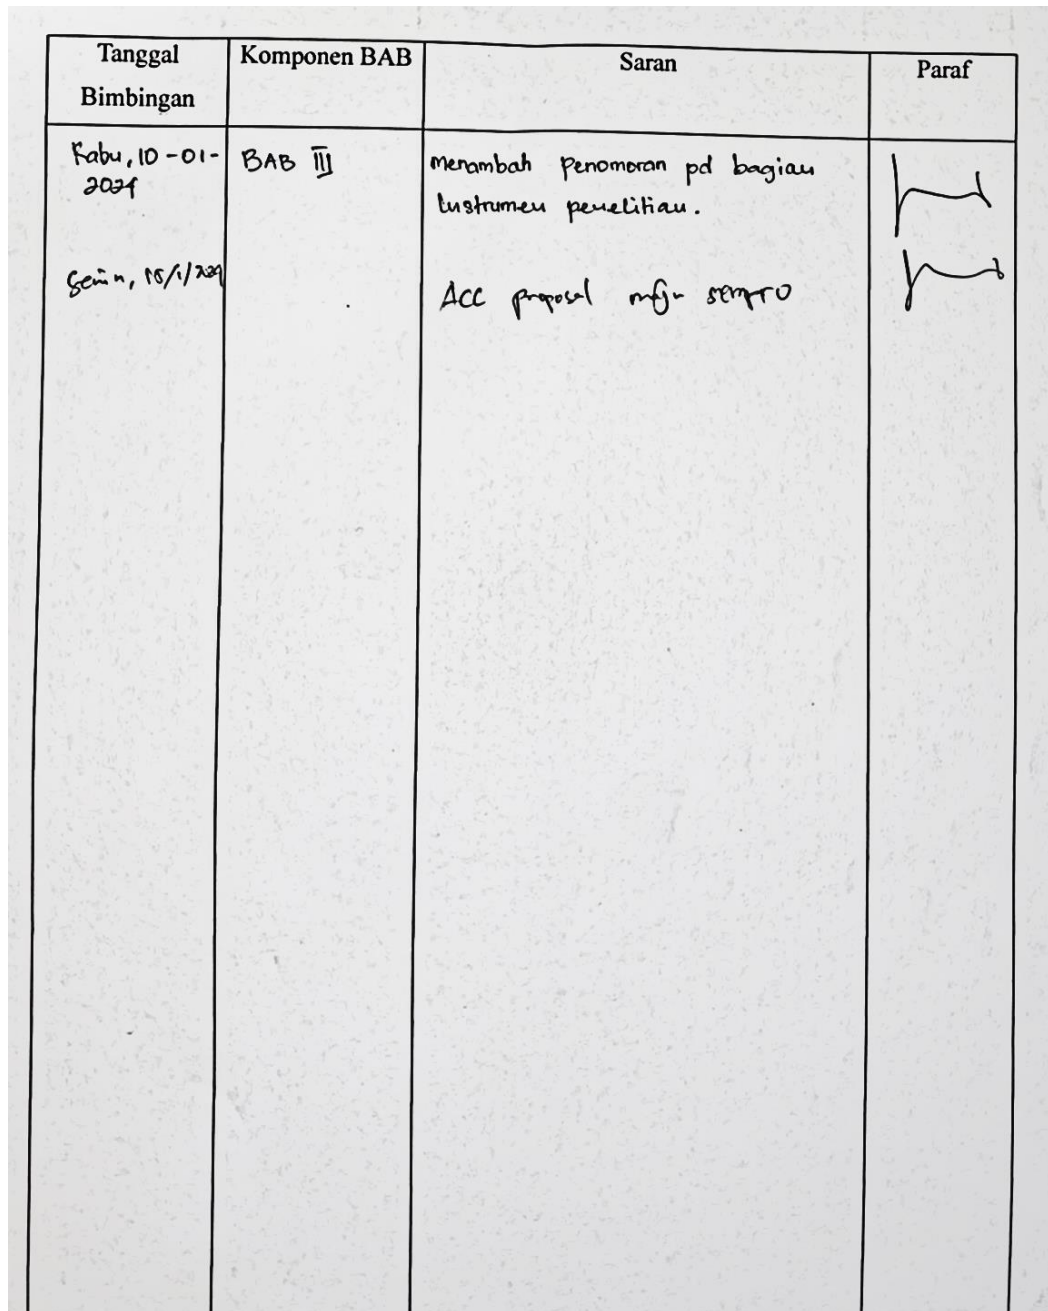 Tanggal Bimbingan
Komponen BAB
Saran
Paraf
Rabu, 10-01-
2024
BAB III
menambah penomoran pd bagian
Instrumen penelitian.
Senin, 15/1/2024
ACC proposal maju sempro